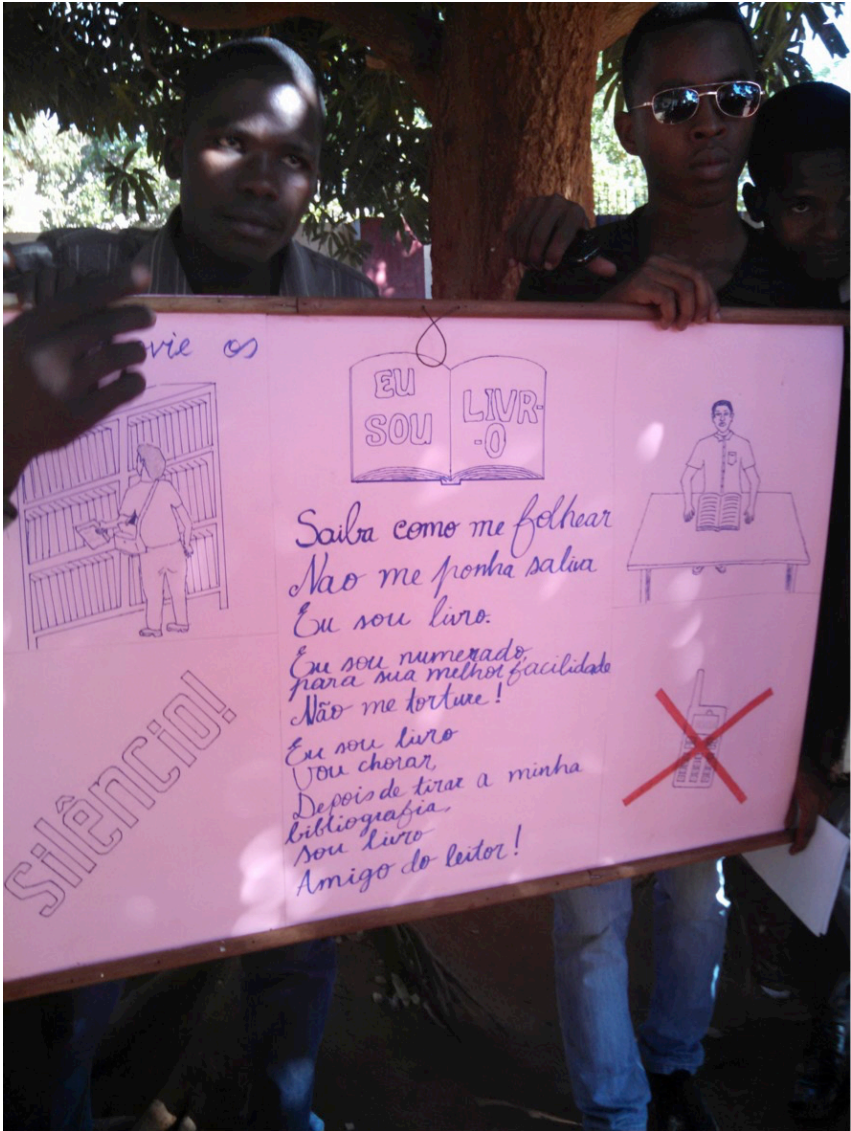 os
EU
SOU
LIVR-
-O
Saiba como me folhear
Nao me ponha saliva
Eu sou livro.
Eu sou numerado,
para sua melhor facilidade
Não me torture!
Eu sou livro
Vou chorar,
Depois de tirar a minha
bibliografia,
sou livro
Amigo do leitor!
Silêncio!